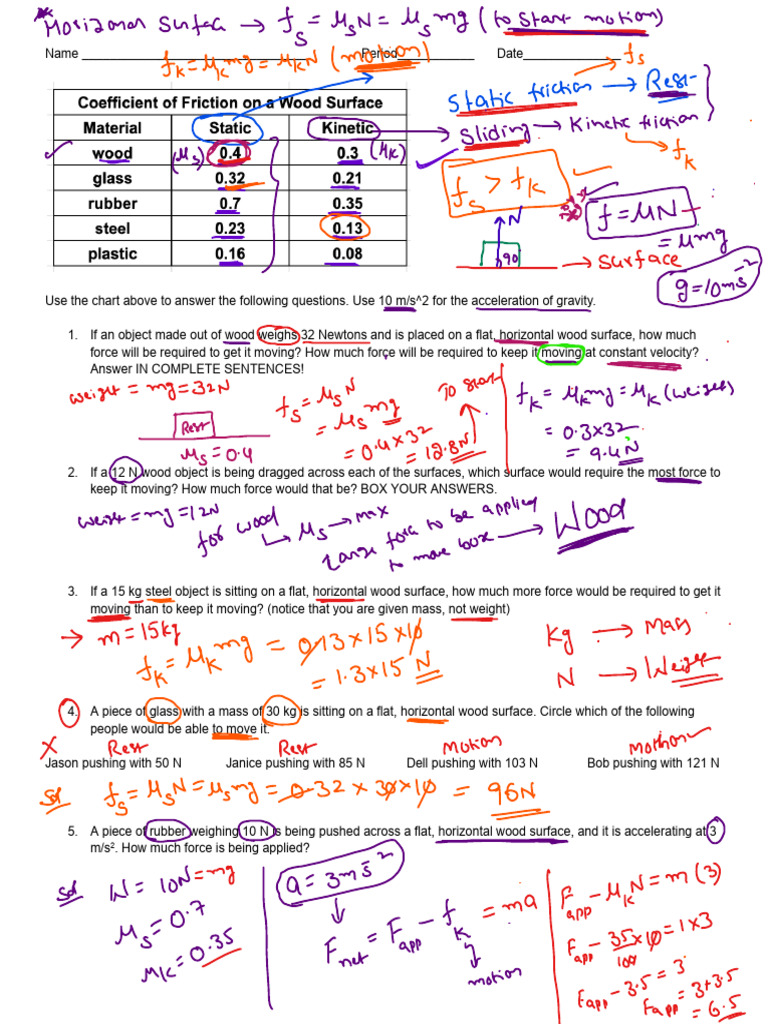 Horizonal Surface → fs = μsN = μs mg (to start motion)
Name Period Date
fk = μk mg = μkN (motion)
fs
Static friction → Rest
Sliding → Kinetic friction
fk
Coefficient of Friction on a Wood Surface
Material Static Kinetic
wood (μs) 0.4 0.3 (μk)
glass 0.32 0.21
rubber 0.7 0.35
steel 0.23 0.13
plastic 0.16 0.08
fs > fk
N
f = μN
= μmg
90
→ surface
g = 10ms⁻²
Use the chart above to answer the following questions. Use 10 m/s^2 for the acceleration of gravity.
1. If an object made out of wood weighs 32 Newtons and is placed on a flat, horizontal wood surface, how much
force will be required to get it moving? How much force will be required to keep it moving at constant velocity?
Answer IN COMPLETE SENTENCES!
weight = mg = 32N
Rest
μs = 0.4
fs = μs N
= μs mg
= 0.4 × 32
= 12.8N
To start
fk = μk mg = μk (weight)
= 0.3×32
= 9.4 N
2. If a 12 N wood object is being dragged across each of the surfaces, which surface would require the most force to
keep it moving? How much force would that be? BOX YOUR ANSWERS.
weight = mg = 12N
for wood
↳ μs → max
Large force to be applied
to move box → Wood
3. If a 15 kg steel object is sitting on a flat, horizontal wood surface, how much more force would be required to get it
moving than to keep it moving? (notice that you are given mass, not weight)
→ m = 15kg
fk = μk mg = 0.13 × 15 × 10
= 1.3 × 15 N
Kg → Mass
N → Weight
4. A piece of glass with a mass of 30 kg is sitting on a flat, horizontal wood surface. Circle which of the following
people would be able to move it.
X Rest Rest Motion Mothon
Jason pushing with 50 N Janice pushing with 85 N Dell pushing with 103 N Bob pushing with 121 N
Sol fs = μsN = μs mg = 0.32 × 30 × 10 = 96N
5. A piece of rubber weighing 10 N is being pushed across a flat, horizontal wood surface, and it is accelerating at 3
m/s². How much force is being applied?
Sol W = 10N = mg
μs = 0.7
μk = 0.35
a = 3ms⁻²
Fnet = Fapp − fk = ma
motion
Fapp − μkN = m (3)
Fapp − 35/100 × 10 = 1 × 3
Fapp − 3.5 = 3
Fapp = 3+3.5
= 6.5